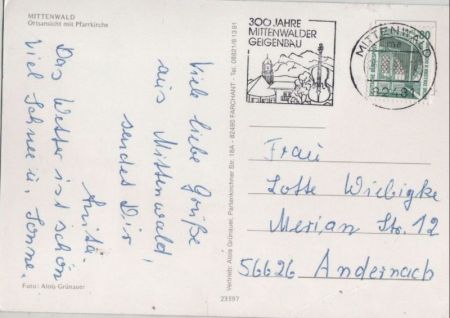 MITTENWALD
Ortsansicht mit Pfarrkirche
Viele liebe Grüße
aus Mittenwald,
sendet Dir
Anita.
Das Wetter ist schön
viel Schnee u. Sonne.
Foto: Alois Grünauer
Vertrieb: Alois Grünauer, Partenkirchner Str. 18A - 82490 FARCHANT - Tel. 08821/61391
23597
300 JAHRE
MITTENWALDER
GEIGENBAU
MITTENWALD
80
Frau
Lotte Wiebigke
Merian Str. 12
56626 Andernach